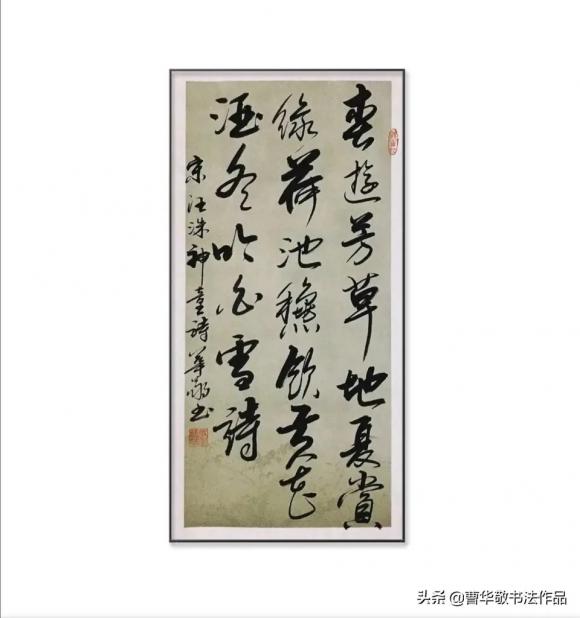 春遊芳草地夏賞
綠荷池龝飲黄花
酒冬吟白雪詩
宋汪洙神童詩華书
头条@曹华敬书法作品